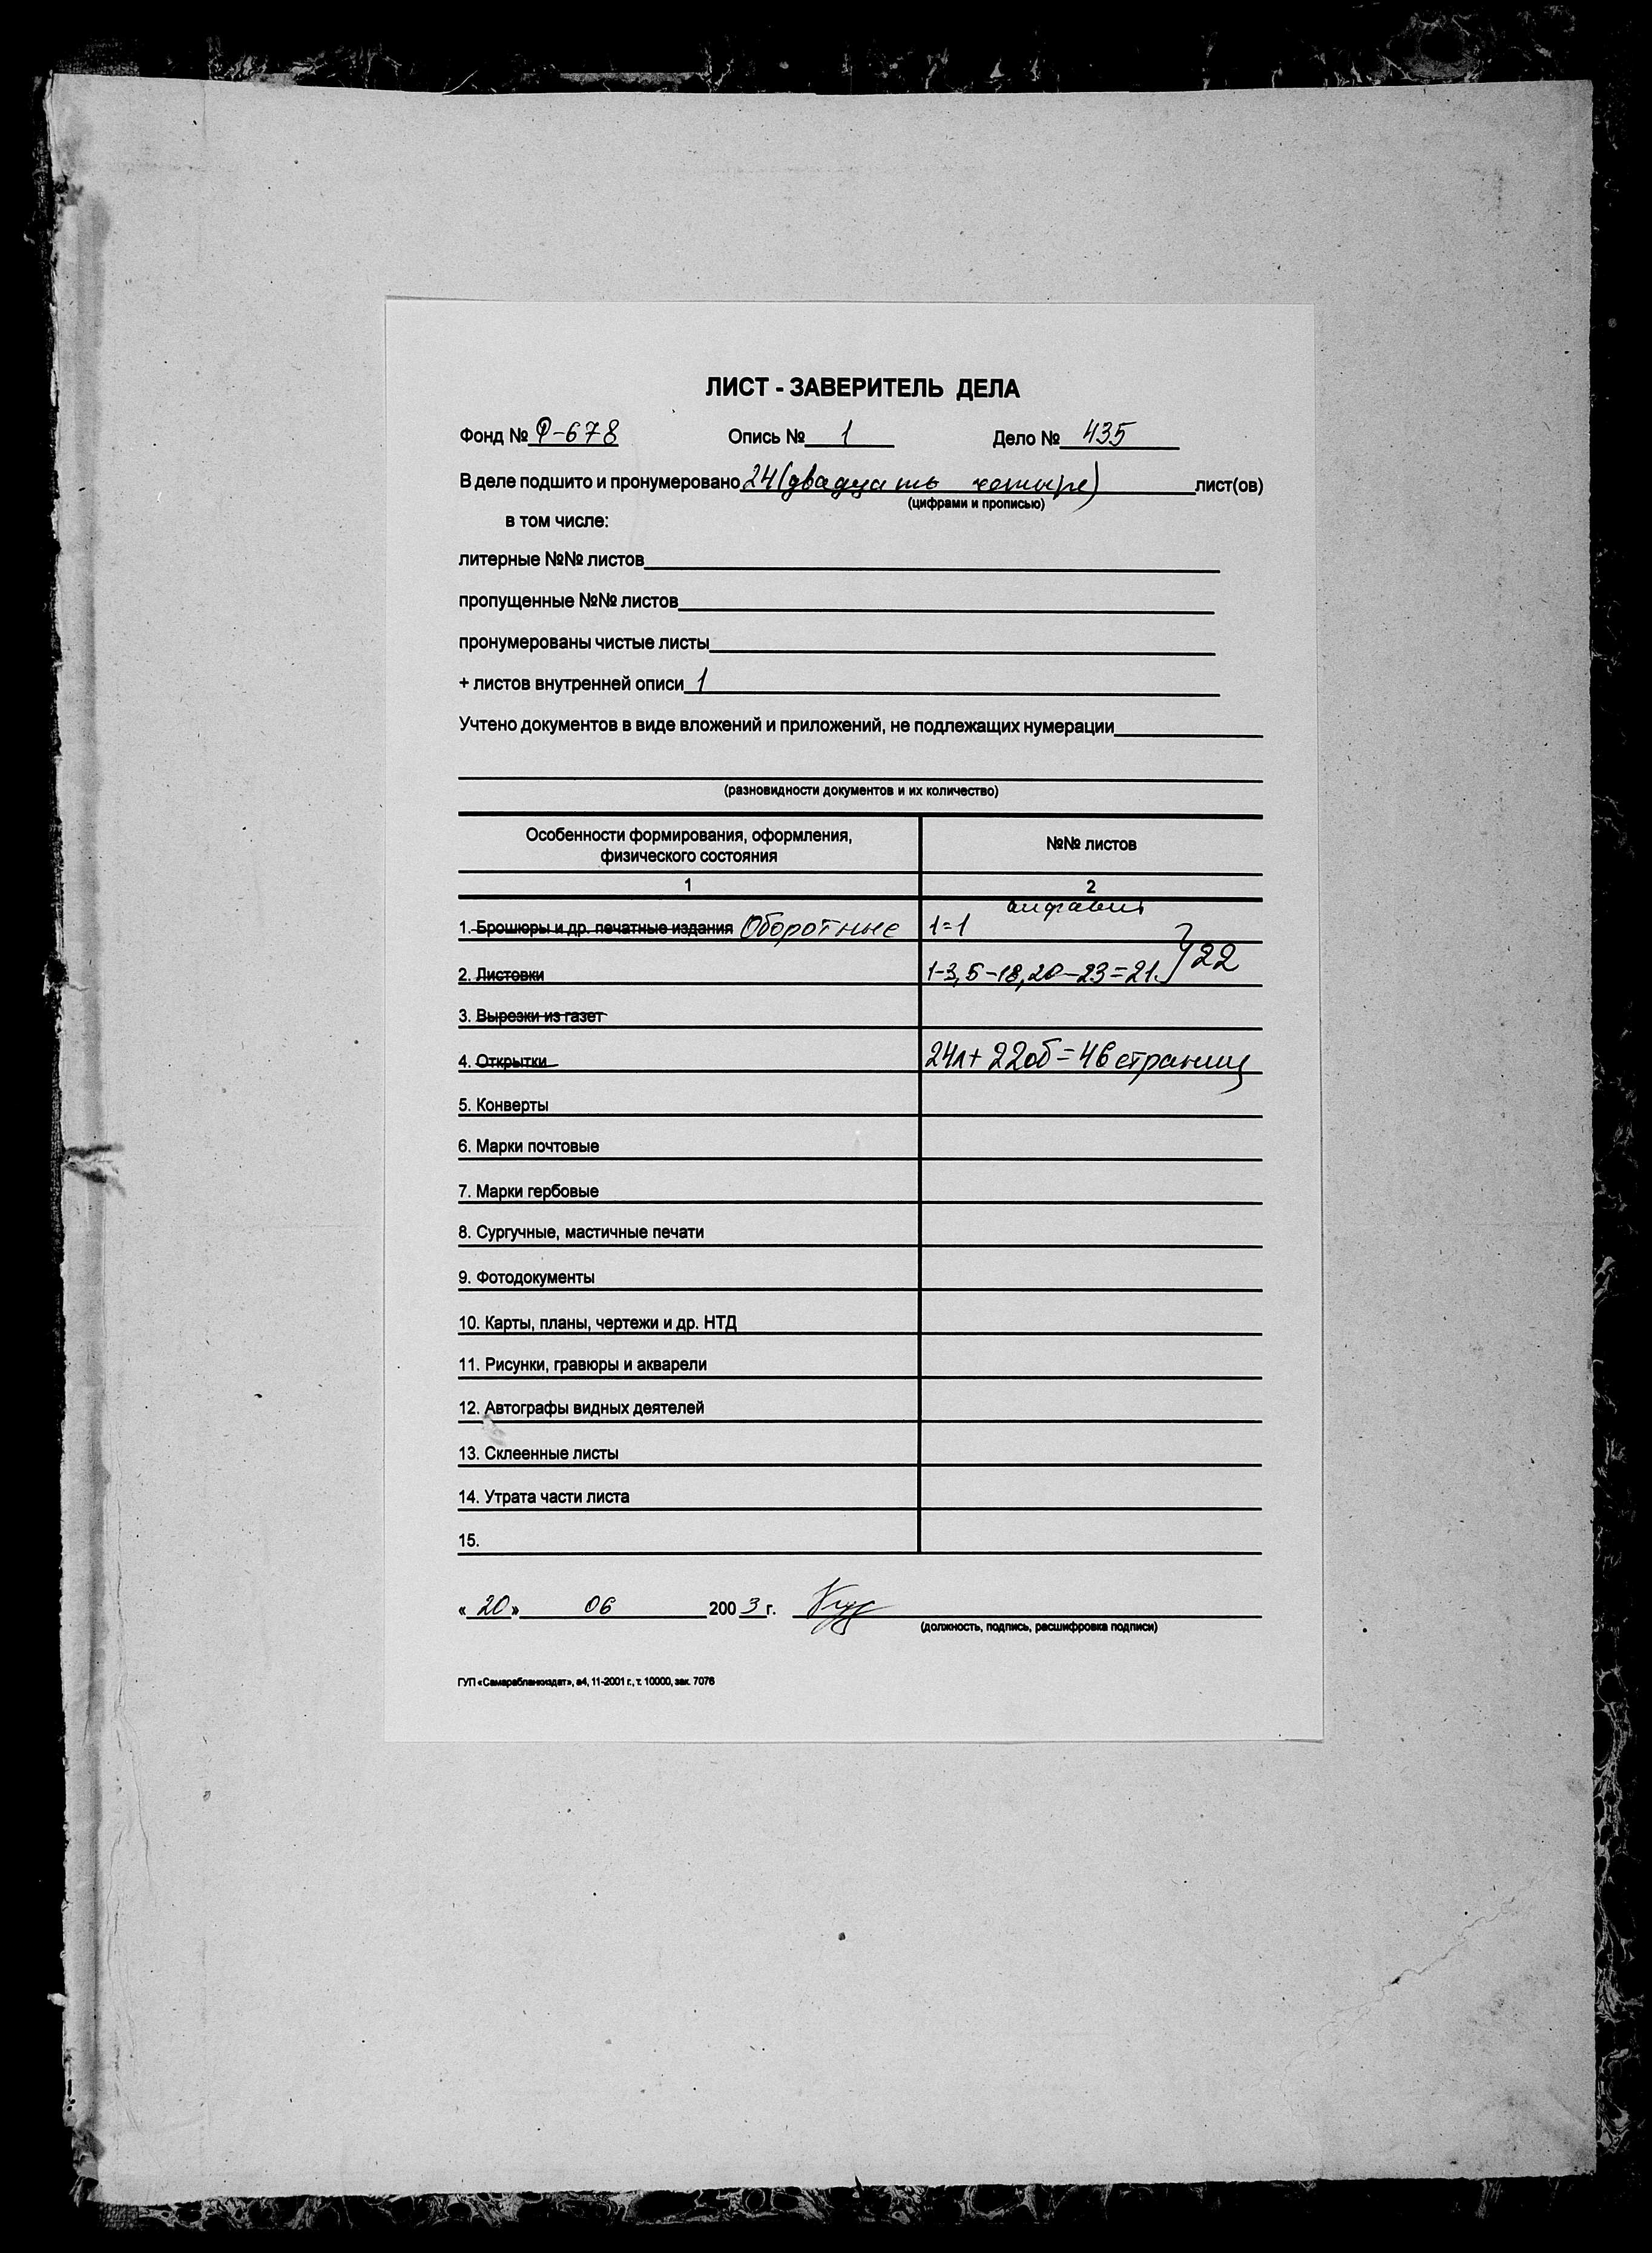 ЛИСТ - ЗАВЕРИТЕЛЬ ДЕЛА
Фонд № Р-678 Опись № 1 Дело № 435
В деле подшито и пронумеровано 24 (двадцать четыре) лист(ов)
(цифрами и прописью)
в том числе:
литерные №№ листов
пропущенные №№ листов
пронумерованы чистые листы
+ листов внутренней описи 1
Учтено документов в виде вложений и приложений, не подлежащих нумерации
(разновидности документов и их количество)
Особенности формирования, оформления, физического состояния №№ листов
1 2
алфавит
1. Брошюры и др. печатные издания Оборотные 1=1
2. Листовки 1-3, 5-18, 20-23=21. } 22
3. Вырезки из газет
4. Открытки 24л + 22об = 46 страниц
5. Конверты
6. Марки почтовые
7. Марки гербовые
8. Сургучные, мастичные печати
9. Фотодокументы
10. Карты, планы, чертежи и др. НТД
11. Рисунки, гравюры и акварели
12. Автографы видных деятелей
13. Склеенные листы
14. Утрата части листа
15.
« 20 » 06 2003 г.
(должность, подпись, расшифровка подписи)
ГУП «Самарабланкиздат», а4, 11-2001 г., т. 10000, зак. 7076